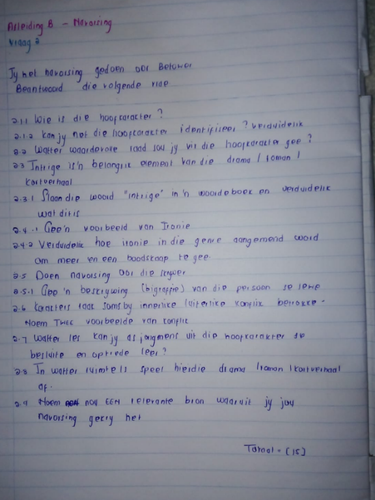 Afdeling B - Navorsing
Vraag 2
Jy het navorsing gedoen oor
Beantwoord die volgende vrae
2.1.1 Wie is die hoofcaracter?
2.1.2 Kan jy met die hoofcarakter identifiseer? Verduidelik
2.2 Watter waardevolle raad sou jy vir die hoofcarakter gee?
2.3 Intrige is'n belangrik element van die drama / roman /
kortverhaal
2.3.1 Slaan die woord "intrige" in 'n woordeboek en verduidelik
wat dit is
2.4.1 Gee'n voorbeeld van Ironie
2.4.2 Verduidelik hoe ironie in die genre aangewend word
om meer en een boodskap te gee
2.5 Doen navorsing oor die skrywer
2.5.1 Gee 'n beskrywing (biografie) van die persoon se lewe
2.6 Karacters raak soms by innerlike / uiterlike konflik betrokke -
Noem TWEE voorbeelde van konflik
2.7 Watter les kan jy as jongmens uit die hoofcarakter se
besluite en optrede leer?
2.8 In watter ruimte/s speel hierdie drama / roman / kortverhaal
af.
2.9 Noem EEN relevante bron waaruit jy jou
navorsing gekry het
Totaal = [15]